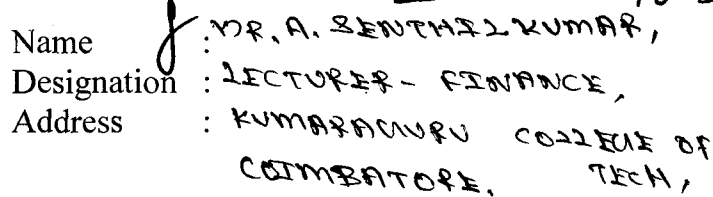 Name : DR. A. SENTHIL KUMAR,
Designation : LECTURER - FINANCE,
Address : KUMARAGURU COLLEGE OF
COIMBATORE. TECH,